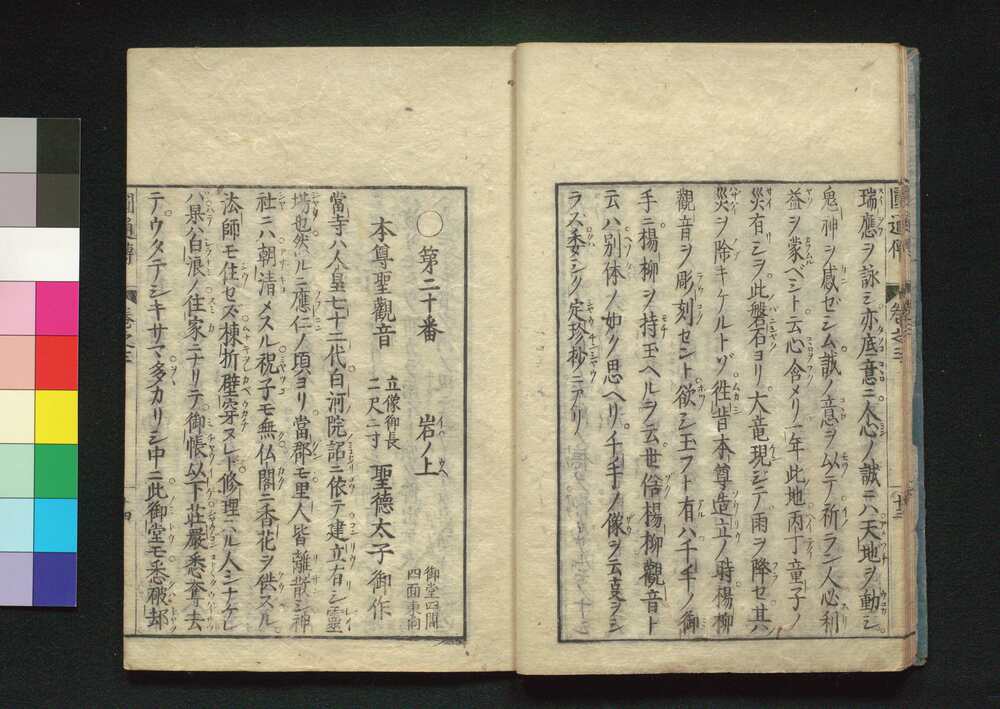 瑞應ヲ詠シ亦底意ニ人心ノ誠ニハ天地ヲ動シ
鬼神ヲ感ゼシム誠ノ意ヲ以テ祈ラン人必利
益ヲ蒙ベシト云心含メリ一年此地丙丁童子ノ
災有シヲ此磐石ヨリ大竜現ジテ雨ヲ降セ其
災ヲ除キケルトゾ徃昔本尊造立ノ時楊柳
觀音ヲ彫刻セント欲シ玉フト有ハ千手ノ御
手ニ楊柳ヲ持玉ヘルヲ云世俗楊柳觀音ト
云ハ別体ノ如ク思ヘリ千手ノ像ヲ云
ラズ委シク定珍抄ニアリ
圓通傳
卷之三
第二十番
岩ノ上
本尊聖觀音
立像御長
二尺二寸
聖德太子御作
御堂四間
四面東向
當寺ハ人皇七十二代白河院詔ニ依テ建立有シ靈
塲也然ルニ應仁ノ頃ヨリ當郡モ里人皆離散シ神
社ニハ朝清メスル祝子モ無仏閣ニ香花ヲ供スル
法師モ住セズ棟折壁穿ヌレド修理ハル人シナケレ
バ泉ハ白浪ノ住家ニナリテ御帳以下莊嚴悉奪去
テウタテシキサマ多カリシ中ニ此御堂モ悉破却
圓通傳
卷之三